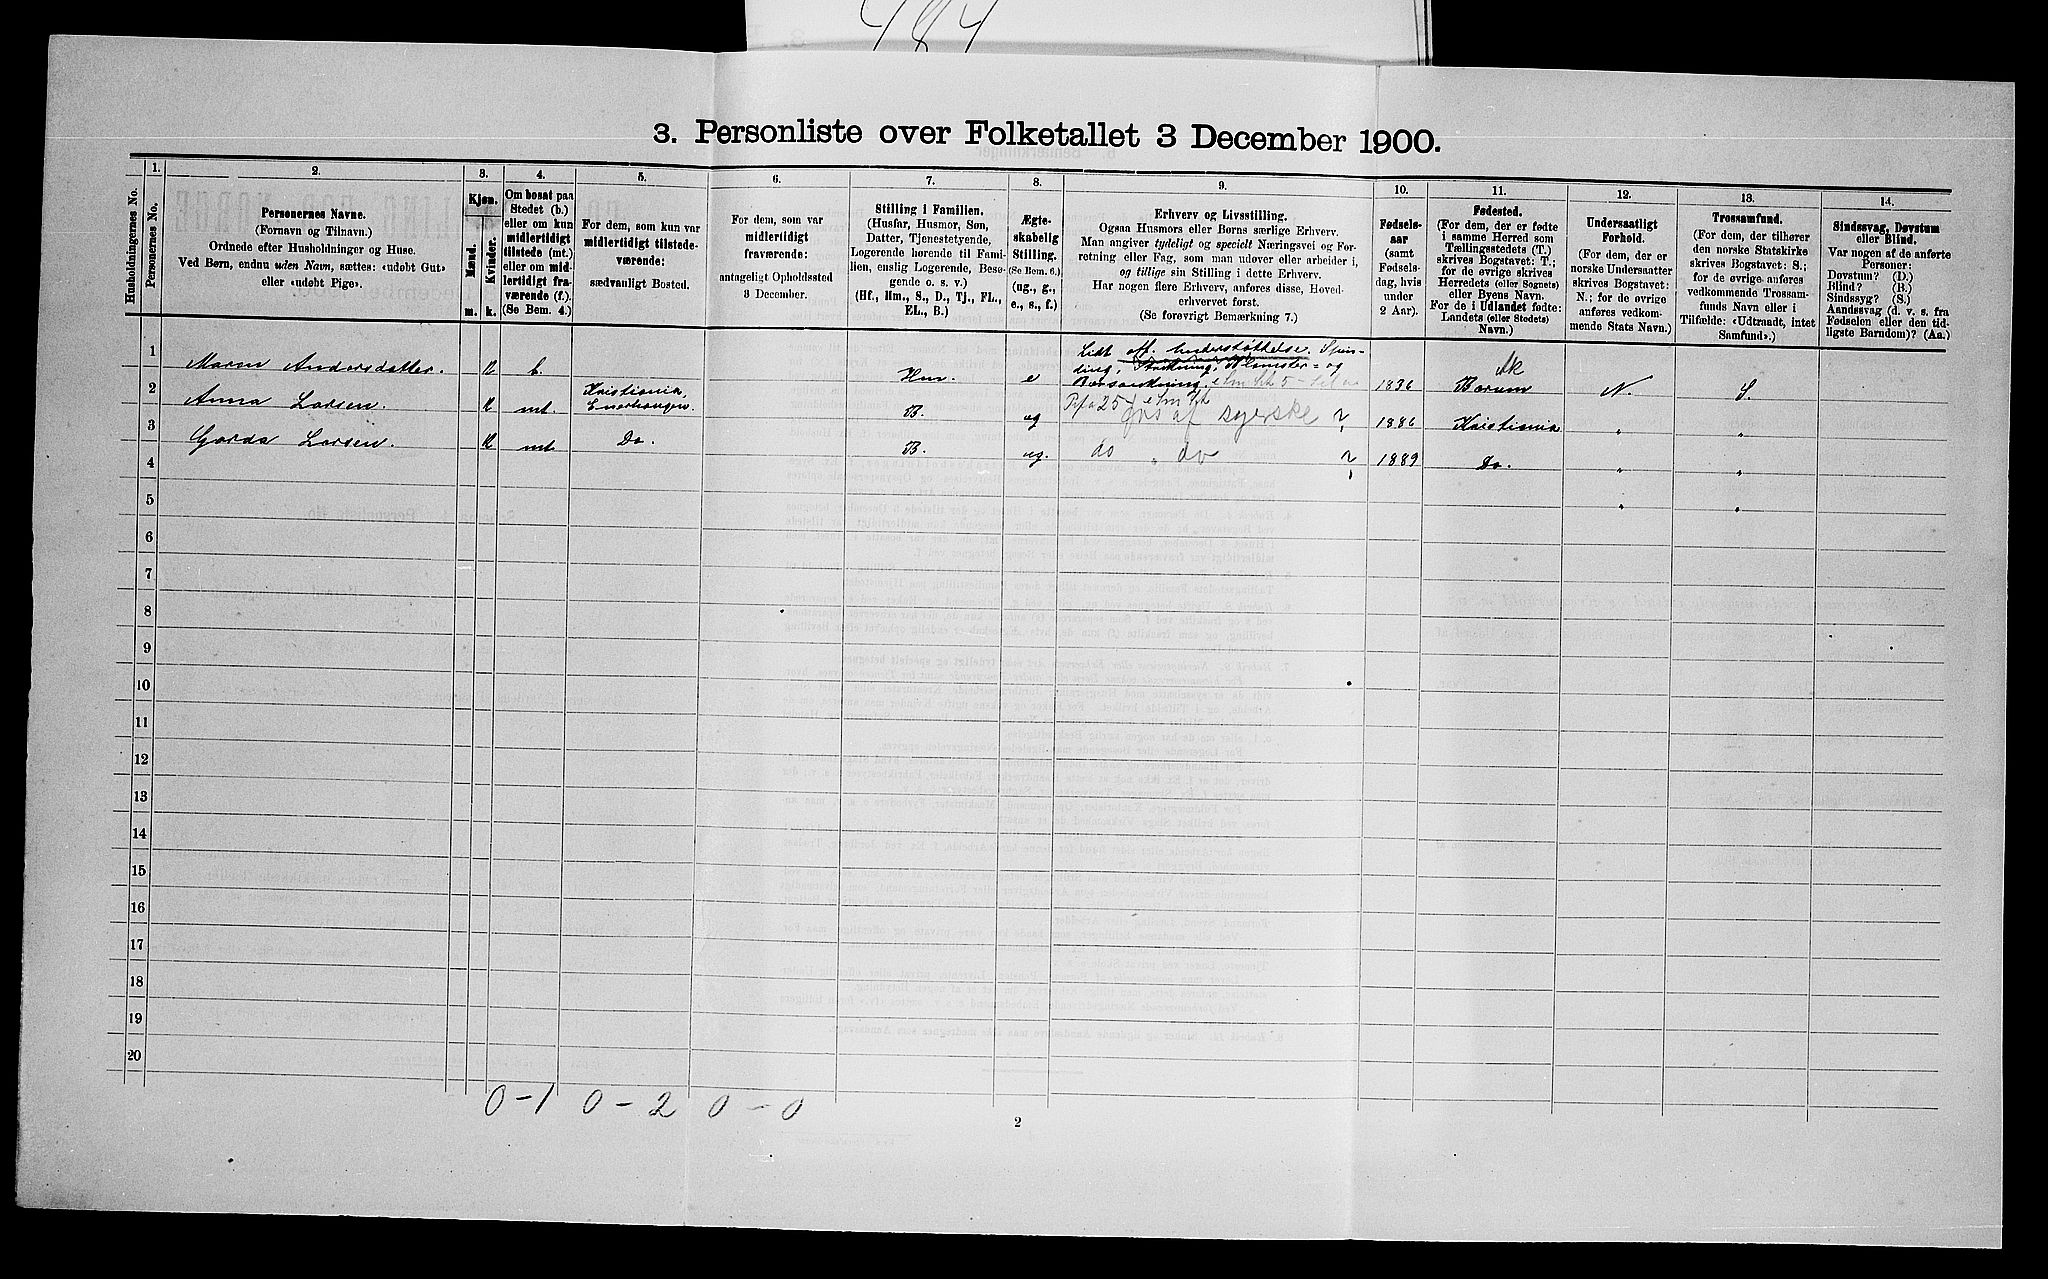 484
3. Personliste over Folketallet 3 December 1900.
Husholdningernes No.
1.
Personernes No.
2.
Personernes Navne.
(Fornavn og Tilnavn.)
Ordnede efter Husholdninger og Huse.
Ved Børn, endnu uden Navn, sættes: «udøbt Gut»
eller «udøbt Pige».
3.
Kjøn.
Mænd.
Kvinder.
m. k.
4.
Om bosat paa
Stedet (b.)
eller om kun
midlertidigt
tilstede (mt.)
eller om mid-
lertidigt fra-
værende (f.).
(Se Bem. 4.)
5.
For dem, som kun var
midlertidigt tilstede-
værende:
sædvanligt Bosted.
6.
For dem, som var
midlertidigt
fraværende:
antageligt Opholdssted
3 December.
7.
Stilling i Familien.
(Husfar, Husmor, Søn,
Datter, Tjenestetyende,
Logerende hørende til Fami-
lien, enslig Logerende, Besø-
gende o. s. v.)
(Hf., Hm., S., D., Tj., FL.,
EL., B.)
8.
Ægte-
skabelig
Stilling.
(Se Bem. 6.)
(ug., g.,
e., s., f.)
9.
Erhverv og Livsstilling.
Ogsaa Husmors eller Børns særlige Erhverv.
Man angiver tydeligt og specielt Næringsvei og For-
retning eller Fag, som man udøver eller arbeider i,
og tillige sin Stilling i dette Erhverv.
Har nogen flere Erhverv, anføres disse, Hoved-
erhvervet først.
(Se forøvrigt Bemærkning 7.)
10.
Fødsels-
aar
(samt
Fødsels-
dag, hvis
under
2 Aar).
11.
Fødested.
(For dem, der er fødte
i samme Herred som
Tællingsstedets (T.)
skrives Bogstavet: T.;
for de øvrige skrives
Herredets (eller Sognets)
eller Byens Navn.
For de i Udlandet fødte:
Landets (eller Stedets)
Navn.)
12.
Undersaatligt
Forhold.
(For dem, der er
norske Undersaatter
skrives Bogstavet:
N.; for de øvrige
anføres vedkom-
mende Stats Navn.)
13.
Trossamfund.
(For dem, der tilhører
den norske Statskirke
skrives Bogstavet: S.;
for de øvrige anføres
vedkommende Trossam-
funds Navn eller i
Tilfælde: «Udtraadt, intet
Samfund».)
14.
Sindssvag, Døvstum
eller Blind.
Var nogen af de anførte
Personer:
Døvstum? (D.)
Blind? (B.)
Sindssyg? (S.)
Aandssvag (d. v. s. fra
Fødselen eller den tid-
ligste Barndom)? (Aa.)
1 Maren Andersdatter. K b. Hm. e Lidt off. Understøttelse. Spin-
ding, Strikning, Blomster- og
Bærsankning 1836 Ak Bærum N. S.
2 Anna Larsen. K mt. Kristiania, Enerhaugen. B. ug af syerske 1886 Kristiania „ „
3 Gerda Larsen. K mt Do. B. ug. do „ do 1889 Do. „ „
4 „ „
5
6
7
8
9
10
11
12
13
14
15
16
17
18
19
20
0-1 0-2 0-0
2